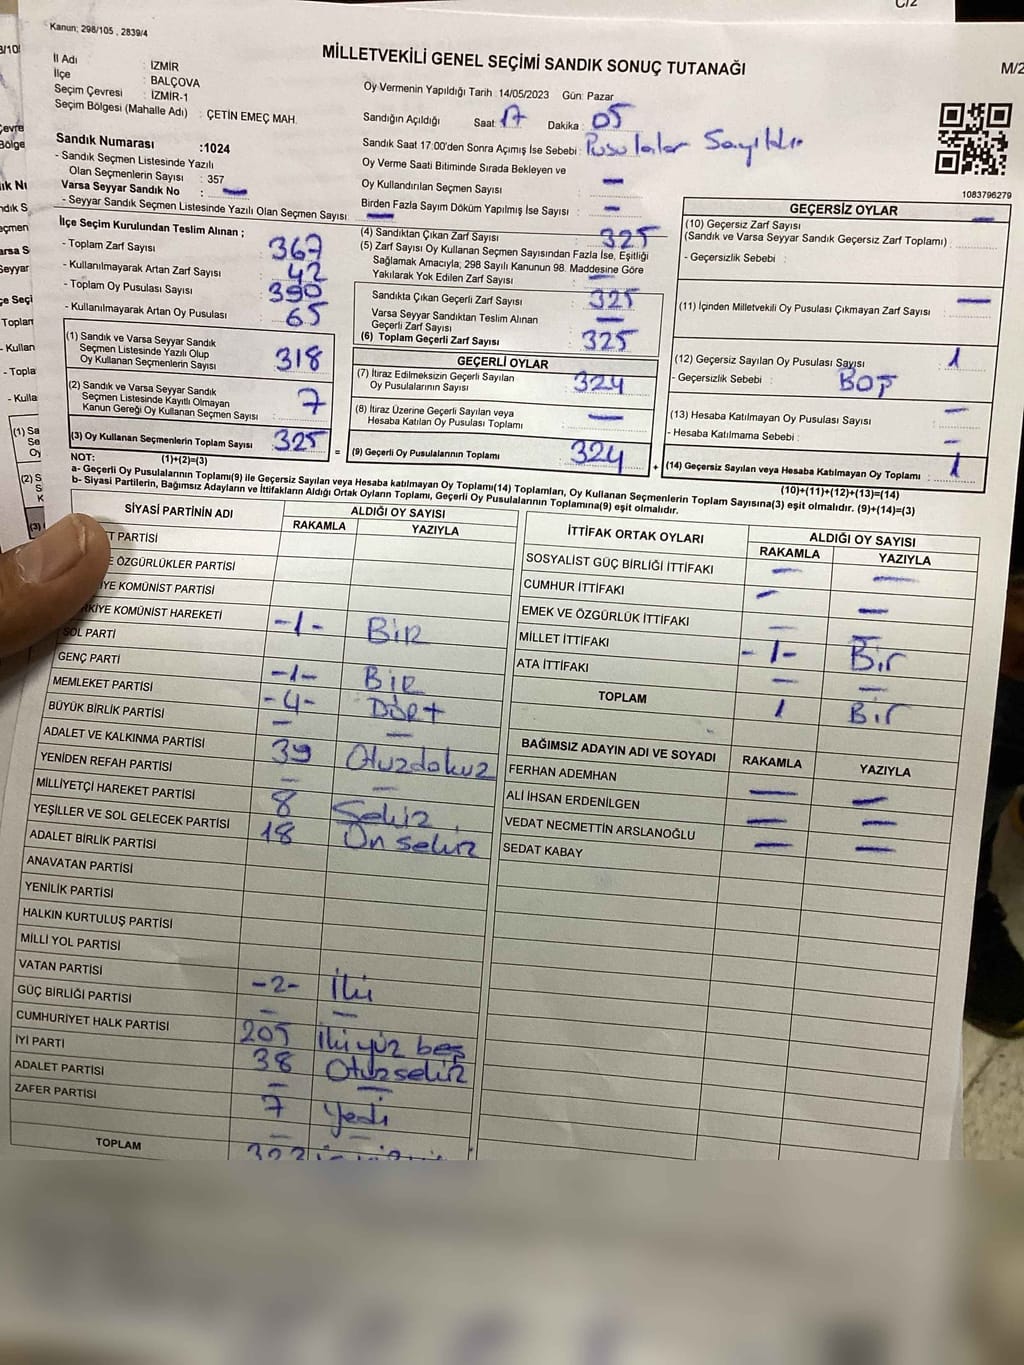 C/2
Kanun; 298/105 , 2839/4
MİLLETVEKİLİ GENEL SEÇİMİ SANDIK SONUÇ TUTANAĞI
M/2
İl Adı : İZMİR
İlçe : BALÇOVA
Seçim Çevresi : İZMİR-1
Seçim Bölgesi (Mahalle Adı) : ÇETİN EMEÇ MAH.
Oy Vermenin Yapıldığı Tarih : 14/05/2023 Gün: Pazar
Sandığın Açıldığı Saat : 17 Dakika : 05
Sandık Saat 17:00'den Sonra Açımış İse Sebebi : Pusulalar Sayıldı
Oy Verme Saati Bitiminde Sırada Bekleyen ve
Oy Kullandırılan Seçmen Sayısı : —
Birden Fazla Sayım Döküm Yapılmış İse Sayısı : —
Sandık Numarası :1024
- Sandık Seçmen Listesinde Yazılı
Olan Seçmenlerin Sayısı : 357
Varsa Seyyar Sandık No : —
- Seyyar Sandık Seçmen Listesinde Yazılı Olan Seçmen Sayısı : —
1083796279
İlçe Seçim Kurulundan Teslim Alınan ;
- Toplam Zarf Sayısı : 367
- Kullanılmayarak Artan Zarf Sayısı : 42
- Toplam Oy Pusulası Sayısı : 390
- Kullanılmayarak Artan Oy Pusulası : 65
(1) Sandık ve Varsa Seyyar Sandık
Seçmen Listesinde Yazılı Olup
Oy Kullanan Seçmenlerin Sayısı : 318
(2) Sandık ve Varsa Seyyar Sandık
Seçmen Listesinde Kayıtlı Olmayan
Kanun Gereği Oy Kullanan Seçmen Sayısı : 7
(3) Oy Kullanan Seçmenlerin Toplam Sayısı : 325
(1)+(2)=(3)
(4) Sandıktan Çıkan Zarf Sayısı : 325
(5) Zarf Sayısı Oy Kullanan Seçmen Sayısından Fazla İse, Eşitliği
Sağlamak Amacıyla; 298 Sayılı Kanunun 98. Maddesine Göre
Yakılarak Yok Edilen Zarf Sayısı : —
Sandıkta Çıkan Geçerli Zarf Sayısı : 325
Varsa Seyyar Sandıktan Teslim Alınan
Geçerli Zarf Sayısı : —
(6) Toplam Geçerli Zarf Sayısı : 325
GEÇERLİ OYLAR
(7) İtiraz Edilmeksizin Geçerli Sayılan
Oy Pusulalarının Sayısı : 324
(8) İtiraz Üzerine Geçerli Sayılan veya
Hesaba Katılan Oy Pusulası Toplamı : —
= (9) Geçerli Oy Pusulalarının Toplamı : 324
GEÇERSİZ OYLAR
(10) Geçersiz Zarf Sayısı
(Sandık ve Varsa Seyyar Sandık Geçersiz Zarf Toplamı) : —
- Geçersizlik Sebebi :
(11) İçinden Milletvekili Oy Pusulası Çıkmayan Zarf Sayısı : —
(12) Geçersiz Sayılan Oy Pusulası Sayısı : 1
- Geçersizlik Sebebi : BOŞ
(13) Hesaba Katılmayan Oy Pusulası Sayısı : —
- Hesaba Katılmama Sebebi : —
+ (14) Geçersiz Sayılan veya Hesaba Katılmayan Oy Toplamı : 1
(10)+(11)+(12)+(13)=(14)
NOT:
a- Geçerli Oy Pusulalarının Toplamı(9) ile Geçersiz Sayılan veya Hesaba katılmayan Oy Toplamı(14) Toplamları, Oy Kullanan Seçmenlerin Toplam Sayısına(3) eşit olmalıdır. (9)+(14)=(3)
b- Siyasi Partilerin, Bağımsız Adayların ve İttifakların Aldığı Ortak Oyların Toplamı, Geçerli Oy Pusulalarının Toplamına(9) eşit olmalıdır.
SİYASİ PARTİNİN ADI ALDIĞI OY SAYISI
RAKAMLA YAZIYLA
PARTİSİ
ÖZGÜRLÜKLER PARTİSİ
KOMÜNİST PARTİSİ
KOMÜNİST HAREKETİ
SOL PARTİ -1- BİR
GENÇ PARTİ
MEMLEKET PARTİSİ -1- BİR
BÜYÜK BİRLİK PARTİSİ -4- DÖRT
ADALET VE KALKINMA PARTİSİ — —
YENİDEN REFAH PARTİSİ 39 Otuzdokuz
MİLLİYETÇİ HAREKET PARTİSİ — —
YEŞİLLER VE SOL GELECEK PARTİSİ 8 Sekiz
ADALET BİRLİK PARTİSİ 18 On sekiz
ANAVATAN PARTİSİ
YENİLİK PARTİSİ
HALKIN KURTULUŞ PARTİSİ
MİLLİ YOL PARTİSİ
VATAN PARTİSİ
GÜÇ BİRLİĞİ PARTİSİ -2- İki
CUMHURİYET HALK PARTİSİ — —
İYİ PARTİ 205 İkiyüz beş
ADALET PARTİSİ 38 Otuzsekiz
ZAFER PARTİSİ — —
7 Yedi
TOPLAM — —
323
İTTİFAK ORTAK OYLARI ALDIĞI OY SAYISI
RAKAMLA YAZIYLA
SOSYALİST GÜÇ BİRLİĞİ İTTİFAKI — —
CUMHUR İTTİFAKI — —
EMEK VE ÖZGÜRLÜK İTTİFAKI — —
MİLLET İTTİFAKI -1- Bir
ATA İTTİFAKI — —
TOPLAM 1 Bir
BAĞIMSIZ ADAYIN ADI VE SOYADI RAKAMLA YAZIYLA
FERHAN ADEMHAN — —
ALİ İHSAN ERDENİLGEN — —
VEDAT NECMETTİN ARSLANOĞLU — —
SEDAT KABAY